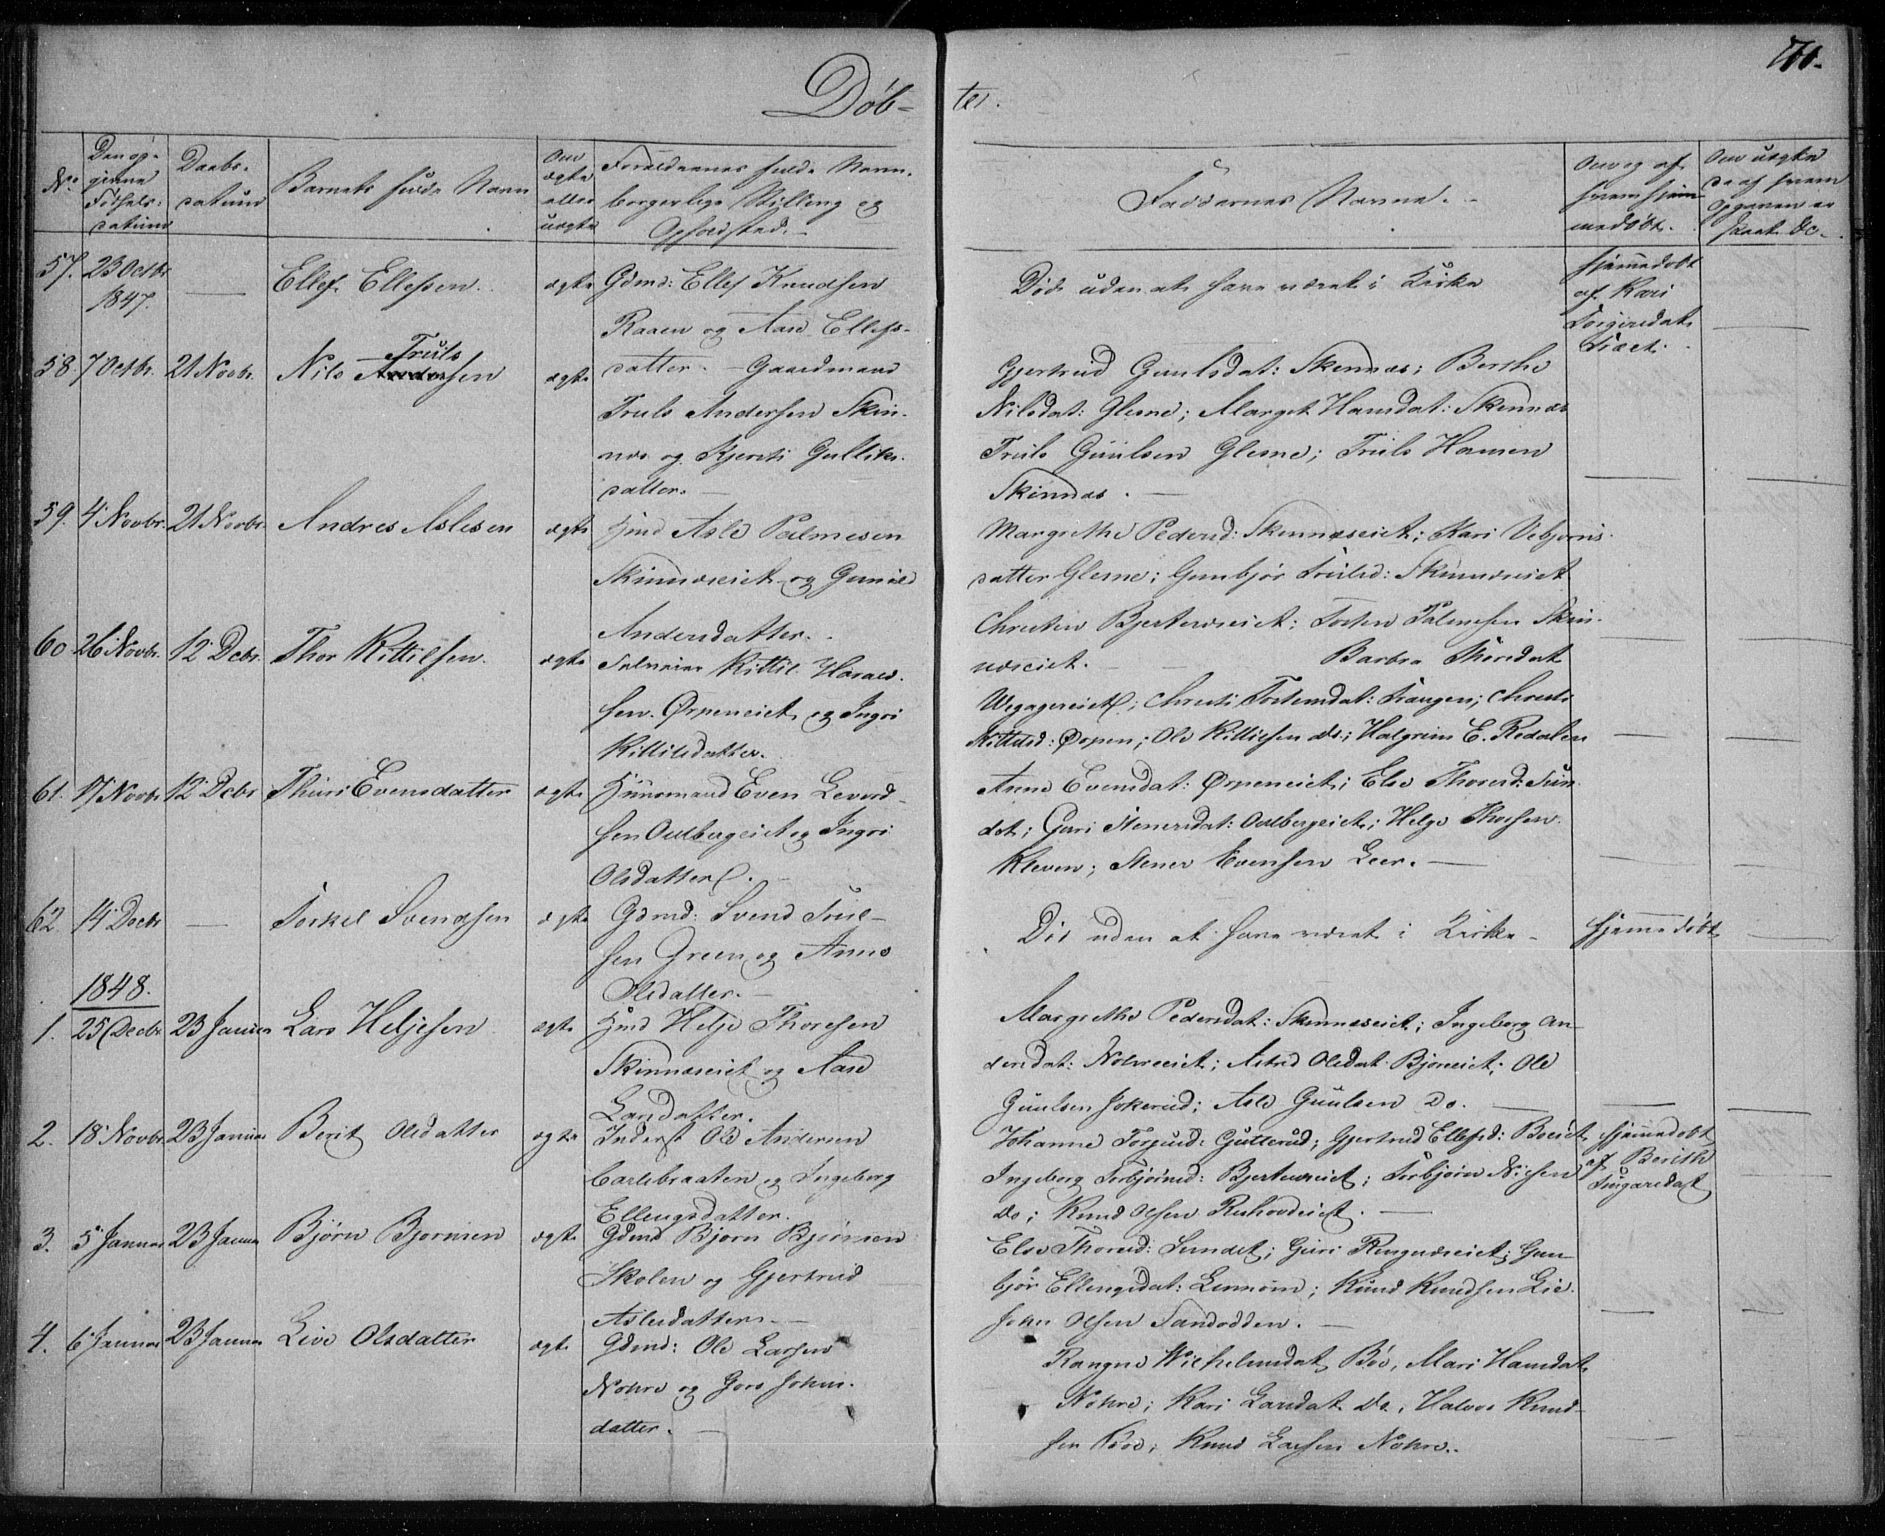 Døb-
ter.
No.
Den op-
givne
Fødsels-
datum
Daabs-
datum
Barnets fulde Navn
Om
ægte
eller
uægte
Forældrenes fulde Navn,
borgerlige Stilling og
Opholdsted.
Faddernes Navne.
Om og af
hvem hjem
medøbt.
Om uægte
da af hvem
Opgaven er
skeet &c.
57. 23 Octbr
1847.
Ellef Ellefsen
ægte
Gdmd: Ellef Knudsen
Raaen og Aase Ellefs-
datter.
Død uden at have været i Kirke
Hjemmedøbt
af Kari
Torgersdat.
58 7 Octbr. 21 Novbr.
Nils Truls
Andersen
ægte
Gaardmand
Truls Andersen Skin-
næs og Kjersti Gulliks-
datter.
Gjertrud Guulsdat: Skennæs; Berthe
Nilsdat: Glesne; Marget Hansdat: Skennæs
Truls Guulsen Glesne; Truls Hansen
Skinnæs.
59. 4 Novbr. 21 Novbr.
Andres Aslesen
ægte
Hmd Asle Palmesen
Skinnæseiet og Gunild
Andersdatter.
Margrethe Pedersd: Skennæseiet; Kari Vebjørns-
datter Glesne; Gunbjør Trulsd: Skinnæseiet
Christen Bjertnæseiet; Torsten Palmesen Skin-
næseiet.
60 26 Novbr. 12 Debr.
Thor Kittilsen
ægte
Kittil Harald-
sen Ørpeneiet og Ingri
Kittilsdatter.
Barbra Thorsdat
Christi Torstensdat: Trangen; Christi
Kittilsd: Ørpen; Ole Kittilsen do; Halgrim E. Redalen
61. 17 Novbr 12 Debr
Thuri Evensdatter
ægte
Huusmand Even Leverd-
sen Aulbergeiet og Ingri
Olsdatter.
Anne Evensdat: Ørpeneiet; Else Thorsd: Sun-
det; Guri Stenersdat: Aulbergeiet; Helge Thorsen
Kleven; Stener Evensen Leer.
62 14 Decbr
Torkel Svendsen
ægte
Gdmd: Svend Truls-
sen Green og Anne
Olsdatter.
Død uden at have været i Kirke
Hjemmedøbt
1848.
1. 25 Decbr 23 Januar
Lars Heljesen
ægte
Hmd Helje Thoresen
Skinnæseiet og Aase
Larsdatter.
Margrethe Pedersdat: Skennæseiet; Ingeborg An-
dersdat: Nohreeiet; Astrid Olsdat Bjøreeiet; Ole
Guulsen Jokerud; Asle Guulsen do.
2. 18 Novbr 23 Januar
Berit Olsdatter
ægte
Inderst Ole Andersen
Carlsbraaten og Ingeborg
Ellengsdatter.
Johanne Gutterud; Gjertrud Ellefsd: Boeiet
Ingeborg Torbjørnsd: Bjertnæseiet; Torbjørn Nilsen
do; Knud Olsen Ruhovdeiet.
Hjemmedøbt
af Berith
3. 5 Januar 23 Januar
Bjørn Bjørnsen
ægte
Gdmd Bjørn Bjørnsen
Skolen og Gjertrud
Aslesdatter.
Else Thorsd: Sundet; Guri Ringnæseiet; Gun-
bjør Ellengsdat: Lennom; Knud Knudsen Lie
John Olsen Sandodden.
4. 6 Januar 23 Januar
Live Olsdatter
ægte
Gdmd: Ole Larsen
Nohre og Goro Johns-
datter.
Rangne Wilhelmsdat Bøe, Mari Hansdat
Nohre; Kari Larsdat do, Halvor Knud-
sen Bøe; Knud Larsen Nohre.